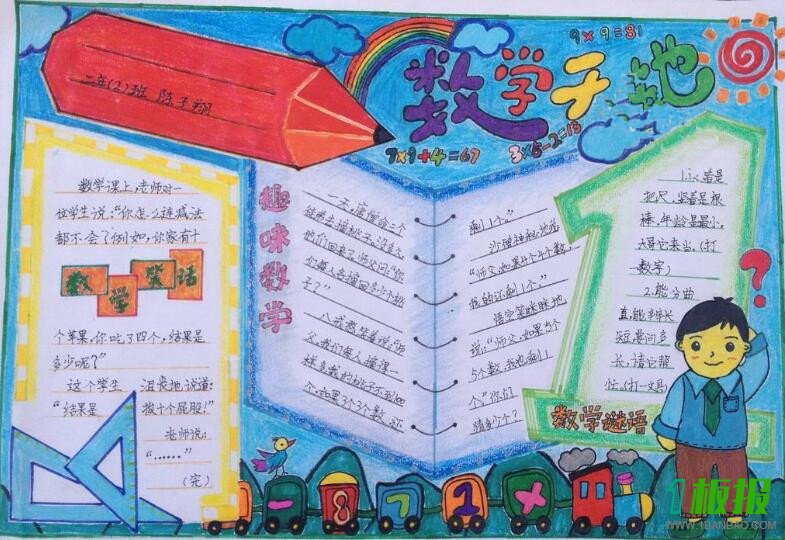 二年(2)班 陈子翔
数学天地
9×9=81
7×9+4=67
3×5-2=13
数学课上,老师对一
位学生说:“你怎么连减法
都不会了例如,你家有十
数学笑话
个苹果,你吃了四个,结果是
多少呢?”
这个学生 沮丧地说道:
“结果是 挨十个屁股!”
老师说:
“……”
(完)
趣味数学
一天,唐僧命三个
徒弟去摘桃子。没多久,
他们回来了。师父问:你
们每人各摘回多少个桃
子?”
八戒憨笑着说:“师
父,我们每人摘得一
样多,我的桃子不到100
个,如果3个3个数,还
剩1个。”
沙僧
“师父,如果4个4个数,
我的还剩1个。”
悟空笑眯眯地
说:“师父,如果5个
5个数,我也剩1
个。”你们
猜多少个?
1
1.
把尺,竖着是根
棒,年龄是最小,
大哥它来当。(打
一数字)
2.能分曲
直,能量长
短,要问多
长,请它帮
忙。(打一文具)
数学谜语
?
- 8 7 1 ×
1板报
WWW.1BANBAO.COM